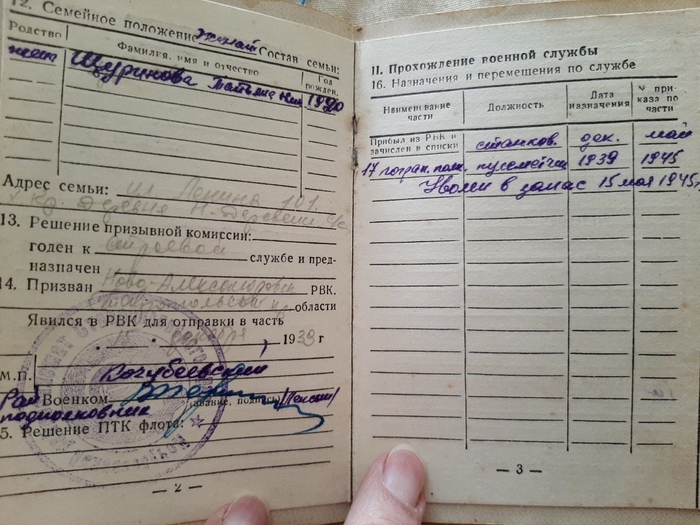 12. Семейное положение женат Состав семьи:
Родство
Фамилия, имя и отчество
Год рожден.
жена
Щуринова Татьяна
Адрес семьи: ул. Ленина 101.
13. Решение призывной комиссии:
годен к строевой службе и пред-
назначен
14. Призван Ново-Александровск РВК.
области
Явился в РВК для отправки в часть
15 1939 г
М.П. Кочубеевский
Рай Военком
(звание, подпись)
подполковник
15. Решение ПТК флота:
— 2 —
II. Прохождение военной службы
16. Назначения и перемещения по службе
Наименование части
Должность
Дата назначения
№ при-каза по части
Прибыл из РВК и зачислен в списки
станков. дек. мая
17 погран. полк. пулеметчик 1939 1945
Уволен в запас 15 мая 1945г
— 3 —